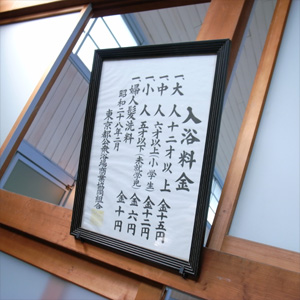 入浴料金
一、大人 十二才以上 金十五円
一、中人 六才以上(小学生) 金十二円
一、小人 五才以下(未就学児) 金六円
一、婦人髪洗料 金十円
昭和二十八年二月
東京都公衆浴場商業協同組合